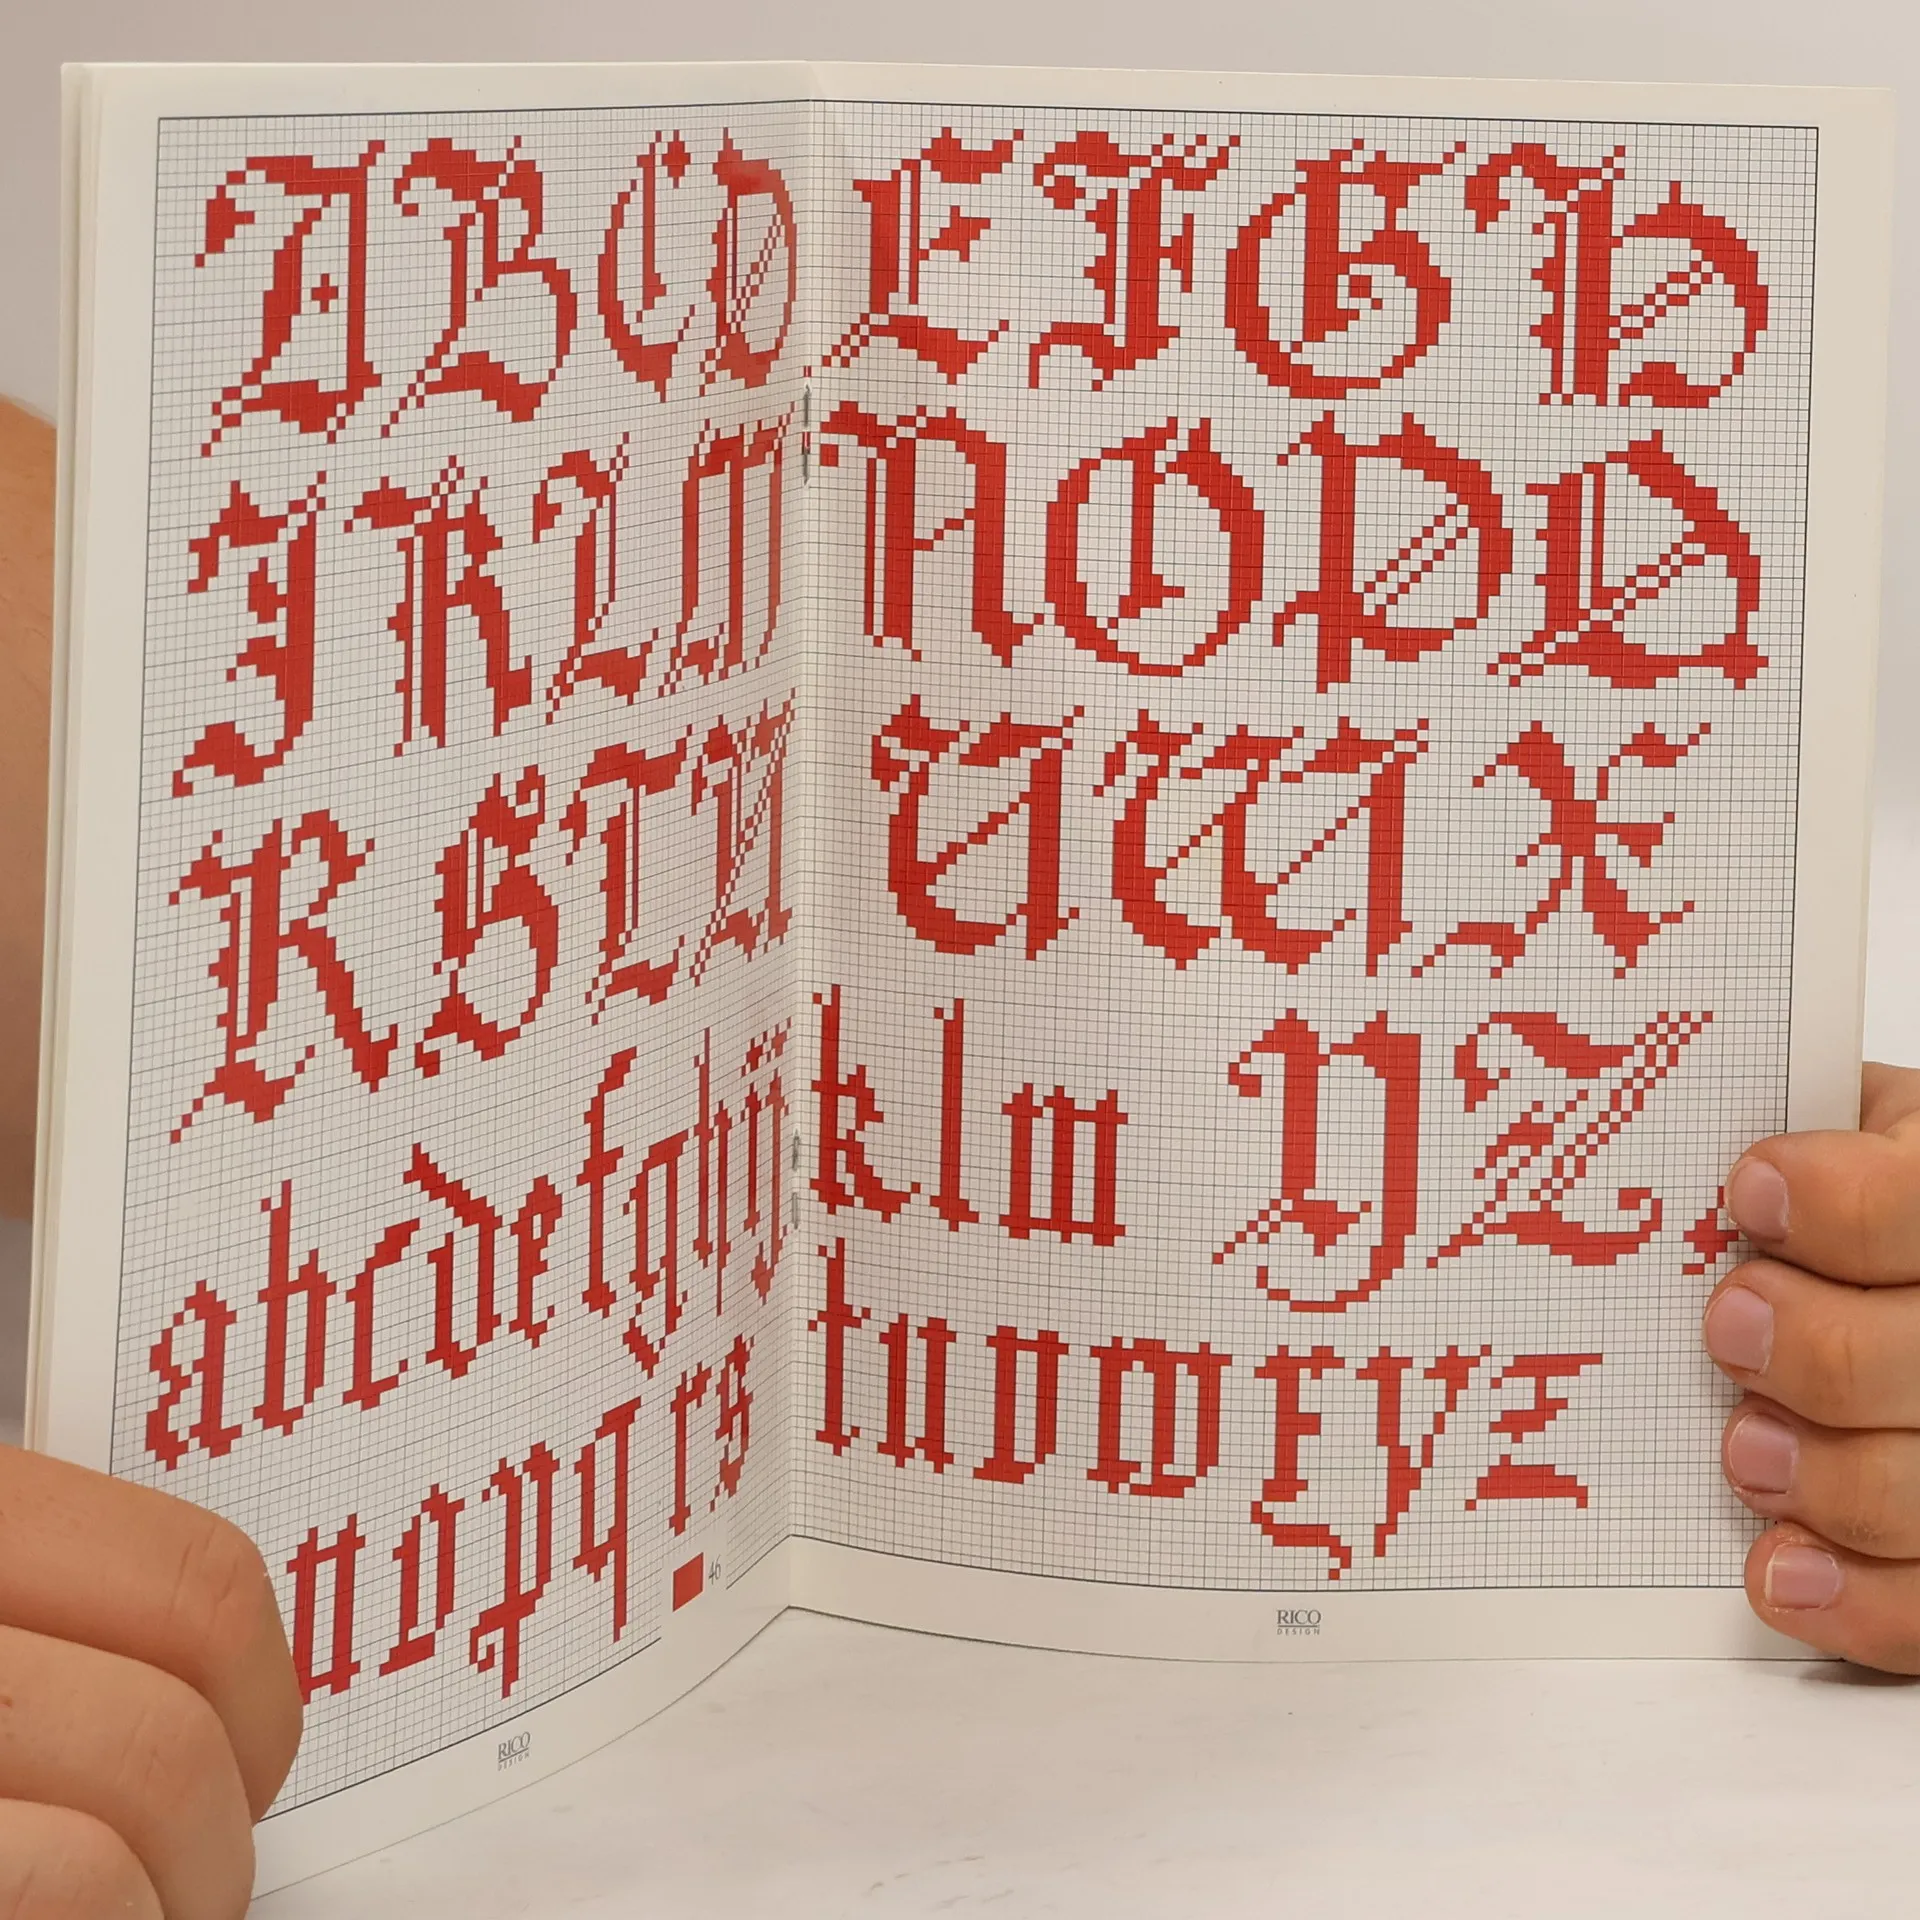 A B C D E F G H
J K L M N O P Q
R S T U V W X
a b c d e f g h i j k l m Y Z ,
n o p q r s t u v w x y z
46
RICO
DESIGN
RICO
DESIGN